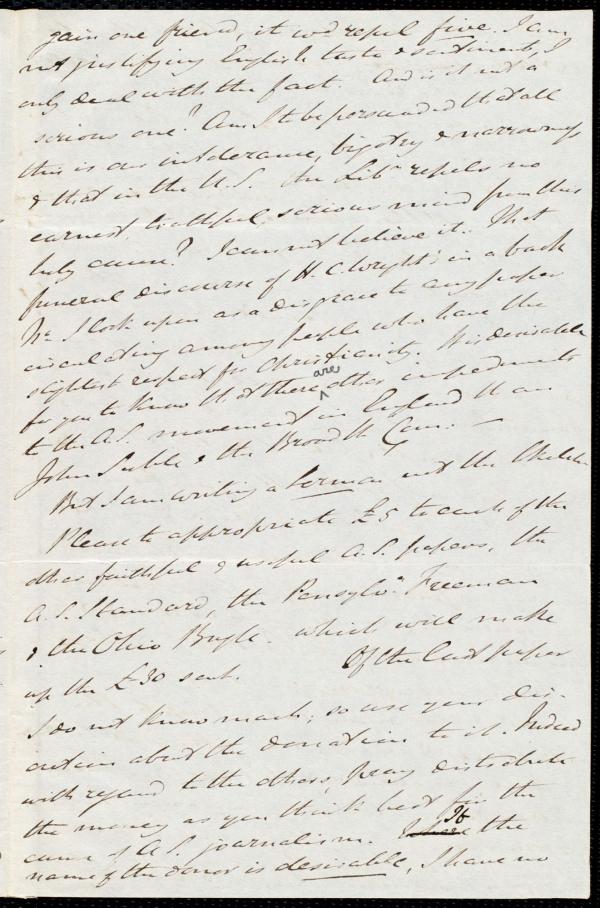 gain one friend, it wd repel five. I am
not justifying English taste & sentiments, I
only deal with the fact. And is it not a
serious one? Am I to be persuaded that all
this is our intolerance, bigotry & narrowness
& that in the U.S. the Libr repels no
earnest, truthful, serious mind from this
holy cause? I can not believe it. That
funeral discourse of H. C. Wright's in a back
No I look upon as a disgrace to any paper
circulating among people who have the
slightest respect for Christianity. It is desirable
for you to know that there are other impediments
to the A.S. movement in England than
John Scoble & the Broad St Com. —
But I am writing a Sermon not the Sketch
Please to appropriate £5 to each of the
other faithful & useful A.S. papers, the
A.S. Standard, the Pensylvn Freeman
& the Ohio Bugle. which will make
up the £30 sent. Of the last paper
I do not know much; so use your dis-
cretion about the donation to it. Indeed
with regard to the others, pray distribute
the money as you think best for the
cause of A.S. journalism. If the
name of the donor is desirable, I have no